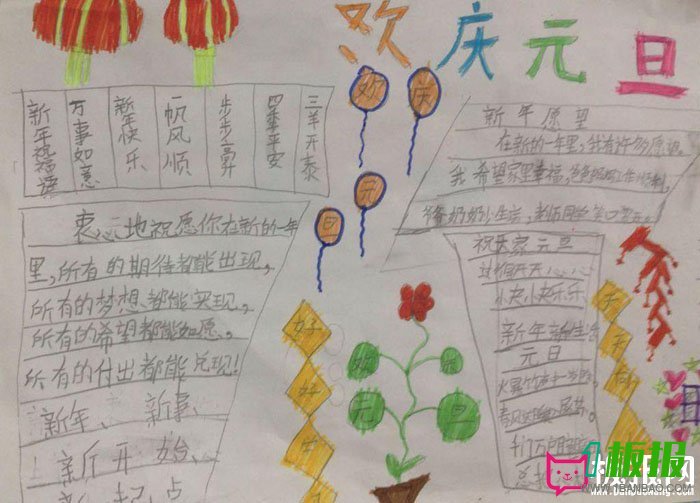 欢庆元旦
欢
庆
元
旦
新年祝福语
万事如意
新年快乐
一帆风顺
步步高
四季平安
三羊开泰
新年原望
在新的一年里,我有许多原望。
我希望家里幸福,爸爸妈妈工作顺利,
衷心地祝愿你在新的一年
里,所有的期待都能出现,
所有的梦想都能实现,
所有的希望都能如愿,
所有的付出都能兑现!
新年、新事、
新开始、
新起点
祝大家元旦
过得开开心心
快快乐乐
新年新生活
元日
好
好
学
天
天
向
欢
乐
元
旦
板报
WWW.1BANBAO.COM